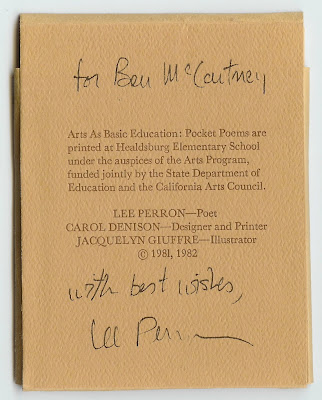 for Ben McCartney
Arts As Basic Education: Pocket Poems are
printed at Healdsburg Elementary School
under the auspices of the Arts Program,
funded jointly by the State Department of
Education and the California Arts Council.
LEE PERRON—Poet
CAROL DENISON—Designer and Printer
JACQUELYN GIUFFRE—Illustrator
© 1981, 1982
with best wishes,
Lee Perron